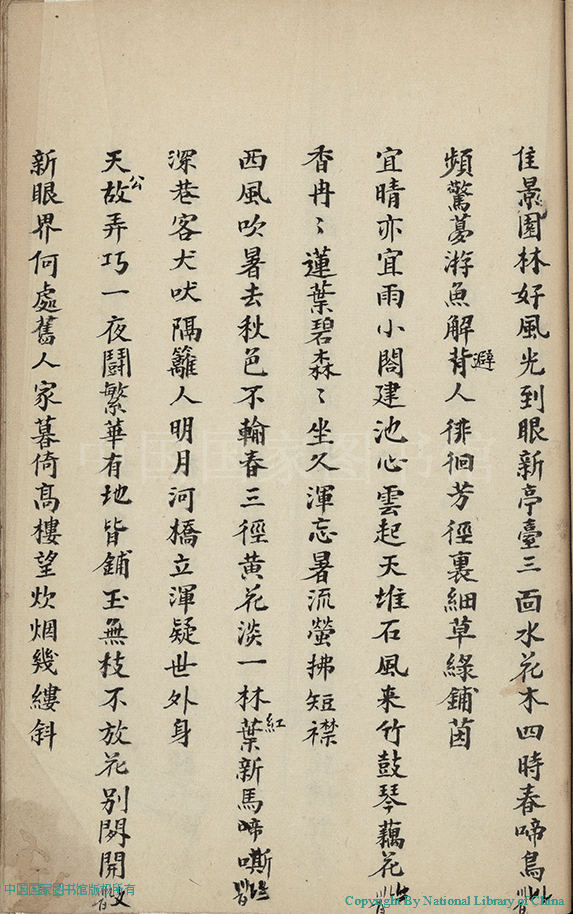 佳景園林好風光到眼新亭臺三面水花木四時春啼鳥
頻驚夢游魚解背避人徘徊芳徑裏細草綠鋪茵
宜晴亦宜雨小閣建池心雲起天堆石風来竹鼓琴藕花
香冉〻蓮葉碧森〻坐久渾忘暑流螢拂短襟
西風吹暑去秋色不輸春三徑黃花淡一林紅葉新馬啼嘶
深巷客犬吠隔籬人明月河橋立渾疑世外身
天公故弄巧一夜鬪繁華有地皆鋪玉無枝不放花別開
新眼界何處舊人家暮倚高樓望炊烟幾縷斜
中国国家图书馆
中国国家图书馆版权所有
Copyright By National Library of China